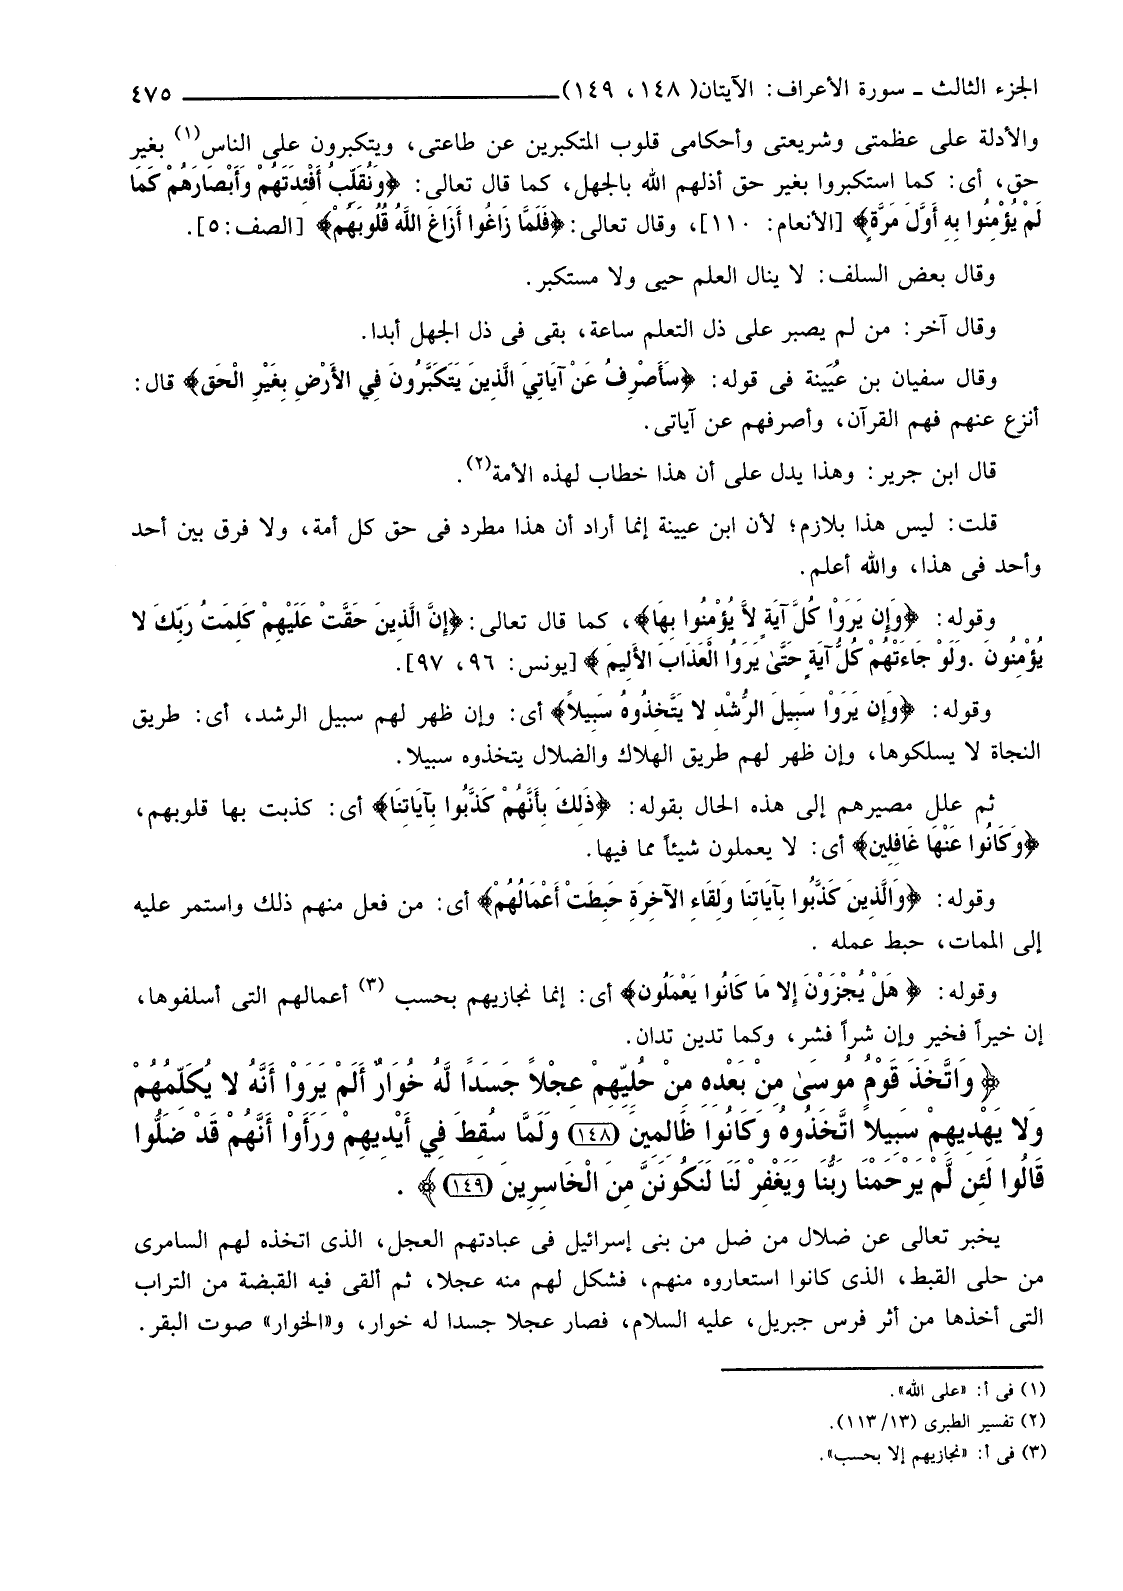 الجزء الثالث ـ سورة الأعراف: الآيتان( ١٤٨، ١٤٩) ٤٧٥
والأدلة على عظمتى وشريعتى وأحكامى قلوب المتكبرين عن طاعتى، ويتكبرون على الناس(١) بغير
حق، أى: كما استكبروا بغير حق أذلهم الله بالجهل، كما قال تعالى: ﴿وَنُقَلِّبُ أَفْئِدَتَهُمْ وَأَبْصَارَهُمْ كَمَا
لَمْ يُؤْمِنُوا بِهِ أَوَّلَ مَرَّةٍ﴾ [الأنعام: ١١٠]، وقال تعالى: ﴿فَلَمَّا زَاغُوا أَزَاغَ اللَّهُ قُلُوبَهُمْ﴾ [الصف:٥].
وقال بعض السلف: لا ينال العلم حيى ولا مستكبر.
وقال آخر: من لم يصبر على ذل التعلم ساعة، بقى فى ذل الجهل أبدا.
وقال سفيان بن عُيَينة فى قوله: ﴿سَأَصْرِفُ عَنْ آيَاتِيَ الَّذِينَ يَتَكَبَّرُونَ فِي الأَرْضِ بِغَيْرِ الْحَق﴾ قال:
أنزع عنهم فهم القرآن، وأصرفهم عن آياتى.
قال ابن جرير: وهذا يدل على أن هذا خطاب لهذه الأمة(٢).
قلت: ليس هذا بلازم؛ لأن ابن عيينة إنما أراد أن هذا مطرد فى حق كل أمة، ولا فرق بين أحد
وأحد فى هذا، والله أعلم.
وقوله: ﴿وَإِن يَرَوْا كُلَّ آيَةٍ لاَّ يُؤْمِنُوا بِهَا﴾، كما قال تعالى: ﴿إِنَّ الَّذِينَ حَقَّتْ عَلَيْهِمْ كَلِمَتُ رَبِّكَ لا
يُؤْمِنُونَ .وَلَوْ جَاءَتْهُمْ كُلُّ آيَةٍ حَتَّىٰ يَرَوُا الْعَذَابَ الأَلِيمَ ﴾ [يونس: ٩٦، ٩٧].
وقوله: ﴿وَإِن يَرَوْا سَبِيلَ الرُّشْدِ لا يَتَّخِذُوهُ سَبِيلاً﴾ أى: وإن ظهر لهم سبيل الرشد، أى: طريق
النجاة لا يسلكوها، وإن ظهر لهم طريق الهلاك والضلال يتخذوه سبيلا.
ثم علل مصيرهم إلى هذه الحال بقوله: ﴿ذَلِكَ بِأَنَّهُمْ كَذَّبُوا بِآيَاتِنَا﴾ أى: كذبت بها قلوبهم،
﴿وَكَانُوا عَنْهَا غَافِلِين﴾ أى: لا يعملون شيئاً مما فيها.
وقوله: ﴿وَالَّذِينَ كَذَّبُوا بِآيَاتِنَا وَلِقَاءِ الآخِرَةِ حَبِطَتْ أَعْمَالُهُمْ﴾ أى: من فعل منهم ذلك واستمر عليه
إلى الممات، حبط عمله .
وقوله: ﴿ هَلْ يُجْزَوْنَ إِلا مَا كَانُوا يَعْمَلُون﴾ أى: إنما نجازيهم بحسب (٣) أعمالهم التى أسلفوها،
إن خيراً فخير وإن شراً فشر، وكما تدين تدان.
﴿ وَاتَّخَذَ قَوْمُ مُوسَىٰ مِنْ بَعْدِهِ مِنْ حُلِيِّهِمْ عِجْلاً جَسَدًا لَّهُ خُوَارٌ أَلَمْ يَرَوْا أَنَّهُ لا يُكَلِّمُهُمْ
وَلا يَهْدِيهِمْ سَبِيلاً اتَّخَذُوهُ وَكَانُوا ظَالِمِينَ (١٤٨) وَلَمَّا سُقِطَ فِي أَيْدِيهِمْ وَرَأَوْا أَنَّهُمْ قَدْ ضَلُّوا
قَالُوا لَئِن لَّمْ يَرْحَمْنَا رَبُّنَا وَيَغْفِرْ لَنَا لَنَكُونَنَّ مِنَ الْخَاسِرِينَ (١٤٩)﴾ .
يخبر تعالى عن ضلال من ضل من بنى إسرائيل فى عبادتهم العجل، الذى اتخذه لهم السامرى
من حلى القبط، الذى كانوا استعاروه منهم، فشكل لهم منه عجلا، ثم ألقى فيه القبضة من التراب
التى أخذها من أثر فرس جبريل، عليه السلام، فصار عجلا جسدا له خوار، و«الخوار» صوت البقر.
(١) فى أ: «على الله».
(٢) تفسير الطبرى (١١٣/١٣).
(٣) فى أ: «نجازيهم إلا بحسب».